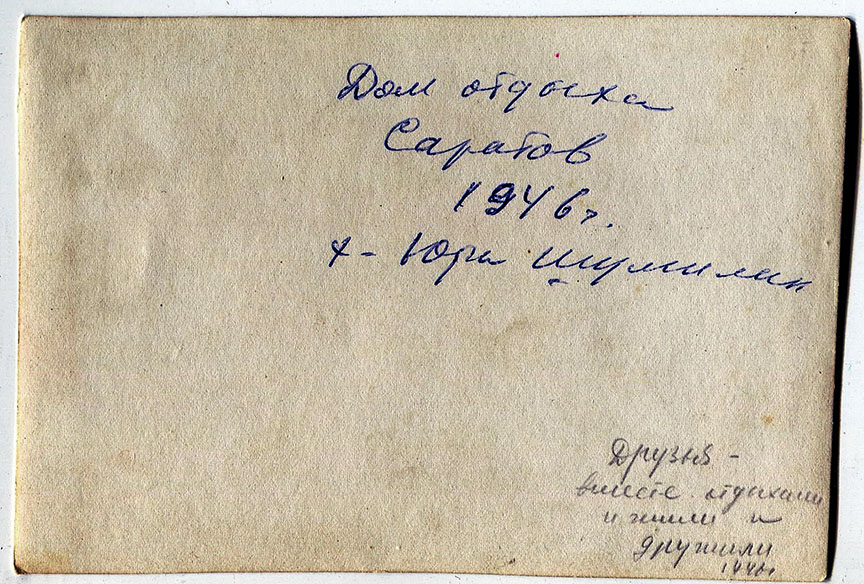 Дом отдыха
Саратов
1946г.
х- Юра Шумилин
Друзья -
вместе отдыхали
и жили и
дружили
1946г